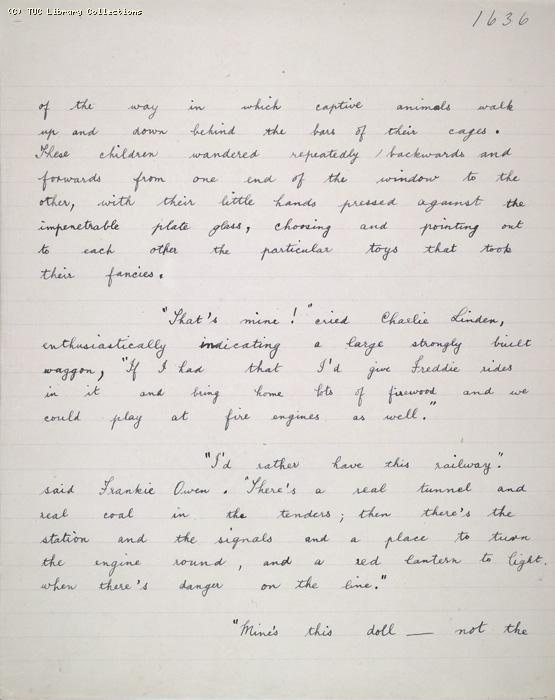 (C) TUC Library Collections
1636
of the way in which captive animals walk
up and down behind the bars of their cages.
These children wandered repeatedly / backwards and
forwards from one end of the window to the
other, with their little hands pressed against the
impenetrable plate glass, choosing and pointing out
to each other the particular toys that took
their fancies.
"That's mine!" cried Charlie Linden,
enthusiastically indicating a large strongly built
waggon, "If I had that I'd give Freddie rides
in it and bring home lots of firewood and we
could play at fire engines as well."
"I'd rather have this railway."
said Frankie Owen. "There's a real tunnel and
real coal in the tenders; then there's the
station and the signals and a place to turn
the engine round, and a red lantern to light.
when there's danger on the line."
"Mine's this doll — not the